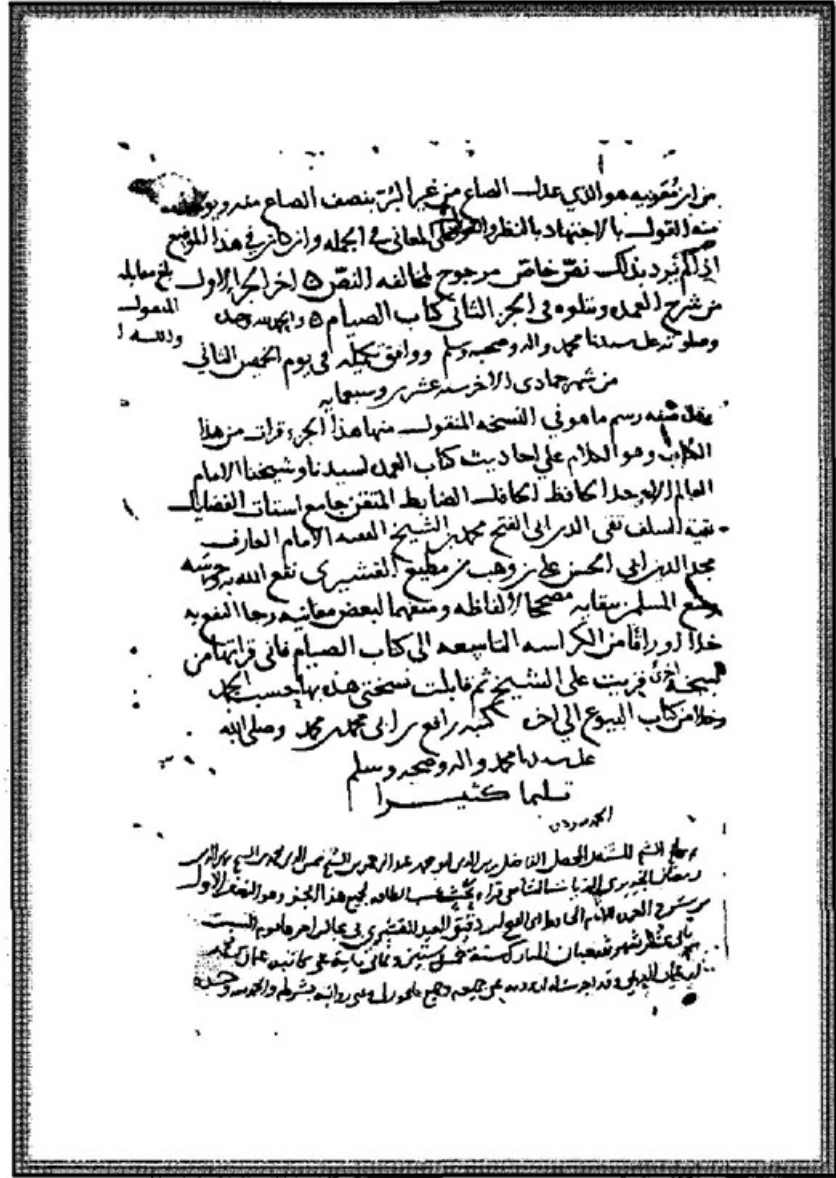 من ان معوية هو الذي عدل الصاع من غير البر بنصف الصاع منه
منه القول بالاجتهاد بالنظر والتعويل على المعاني في الجملة وان كان في هذا الموضع
اذا لم يرد بذلك نص خاص مرجوح لمخالفة النص ه اخر الجزء الاول
بلغ مقابله
من شرح العمدة ويتلوه في الجزء الثاني كتاب الصيام ه والحمد لله وحده
وصلوته على سيدنا محمد واله وصحبه وسلم ووافق تكميله في يوم الخميس الثاني
من شهر جمادى الاخر سنه عشرين وسبعمايه
صفه رسم ما هو في النسخه المنقول منها هذا الجزء قرات من هذا
الكتاب وهو الكلام على احاديث كتاب العمدة لسيدنا وشيخنا الامام
العالم الاوحد الحافظ الضابط المتقن جامع اشتات الفضايل
بقية السلف تقي الدين ابي الفتح محمد بن الشيخ الفقيه الامام العارف
مجد الدين ابي الحسن علي بن وهب بن مطيع القشيري نفع الله به
المسلمين ببقايه مصححا لالفاظه ومتفهما لبعض معانيه رجا النفع به
خلا اوراقا من الكراسه التاسعه الى كتاب الصيام فاني قراتها من
نسخة اخرى قريت على الشيخ ثم قابلت نسختي هذه بها حسب الجهد
وخلا من كتاب البيوع الى اخره كتبه رافع بن ابي محمد بن محمد وصلى الله
على سيدنا محمد واله وصحبه وسلم
تسليما كثيرا
الحمد لله وحده
الشيخ المشتغل المحصل الفاضل زين الدين ابو محمد عبد الرحمن بن الشيخ شمس الدين محمد بن الشيخ
رمضان الشافعي قراءة بحث حسب الطاقه لجميع هذا الجزء وهو النصف الاول
من شرح العمدة للامام الحافظ ابي الفتح ابن دقيق العيد القشيري في مجالس اخرها يوم السبت
ثاني عشر شهر شعبان المبارك سنة خمس وستين وثماني ماية على كاتبه عثمان بن محمد
ابن عثمان الديمي وقد اجزت له ان يرويه عني وجميع ما يجوز لي وعني روايته بشرطه والحمد لله وحده